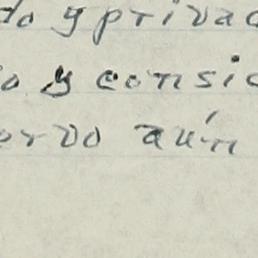 do y privad
o y consi
ervo aún